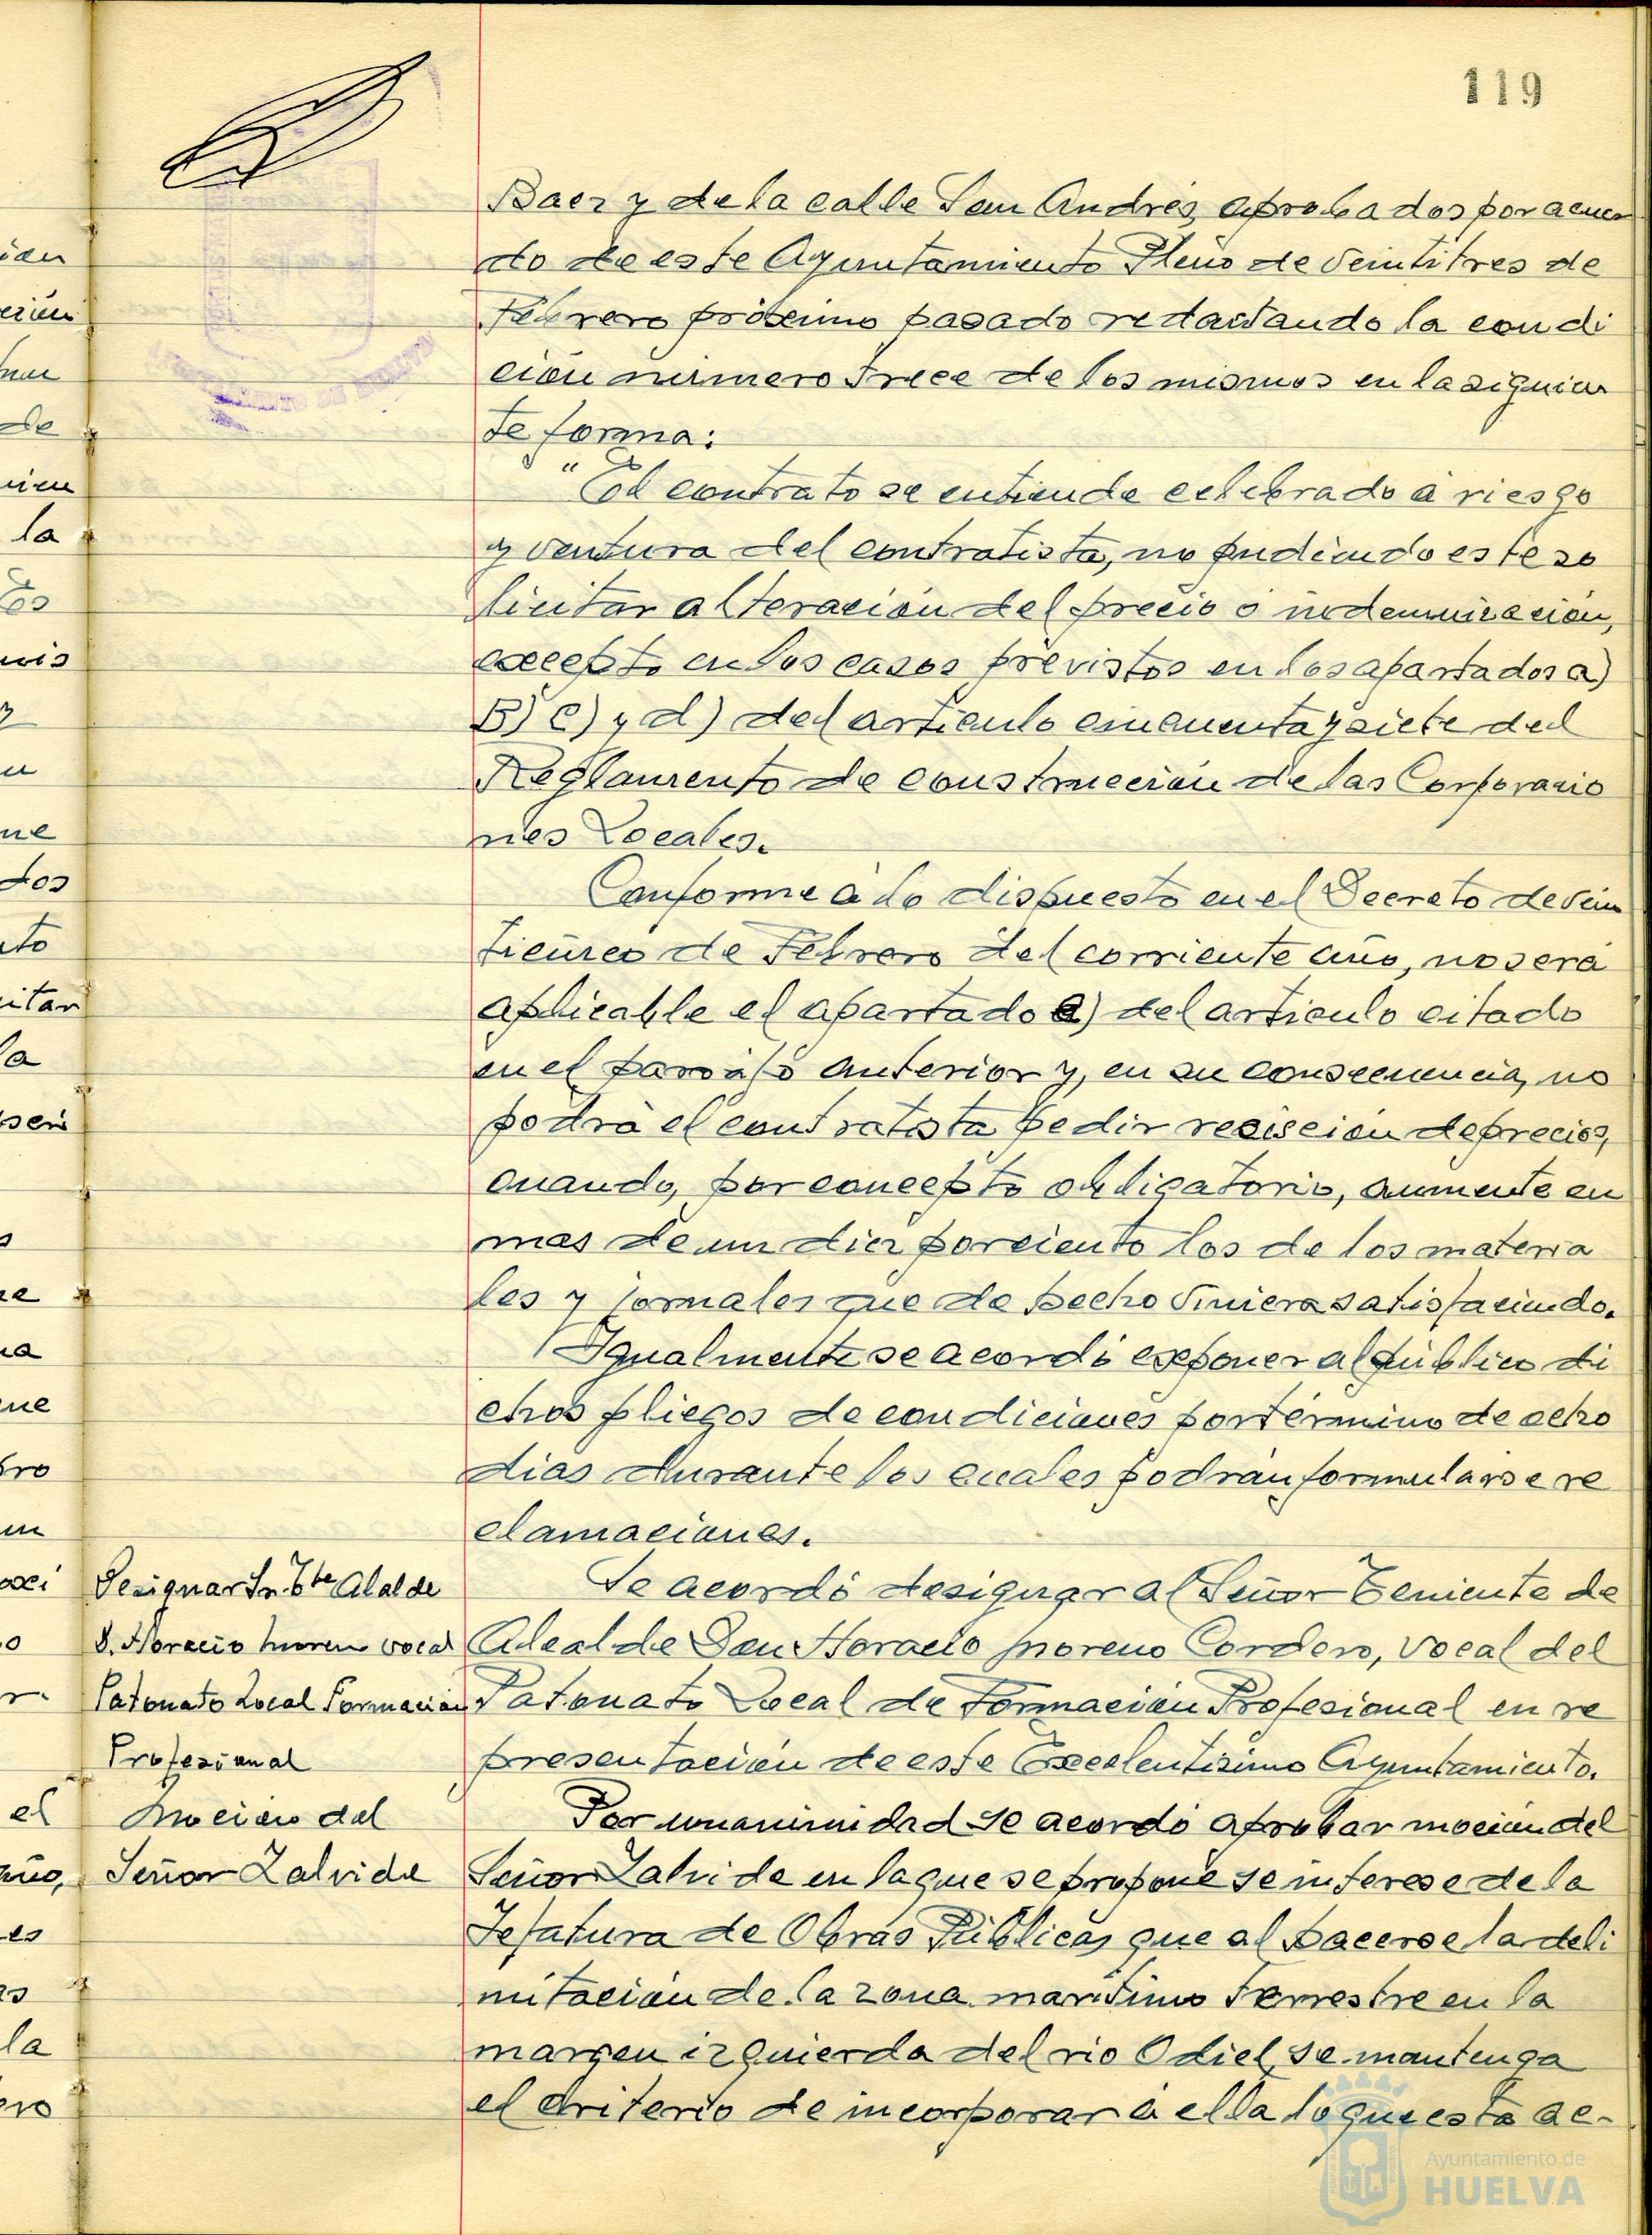 119
Baez y de la calle San Andrés, aprobados por acuer
do de este Ayuntamiento Pleno de veintitres de
Febrero próximo pasado redactando la condi
ción número trece de los mismos en la siguien
te forma:
"El contrato se entiende celebrado á riesgo
y ventura del contratista, no pudiendo este so
licitar alteración del precio ó indemnización,
excepto en los casos previstos en los apartados a)
B) c) y d) del articulo cincuenta y siete del
Reglamento de construcción de las Corporacio
nes Locales.
Conforme á lo dispuesto en el Decreto de vein
ticinco de Febrero del corriente año, no será
aplicable el apartado a) del articulo citado
en el parrafo anterior y, en su consecuencia, no
podrá el contratista pedir revisción de precios,
cuando, por concepto obligatorio, aumente en
mas de un diez por ciento los de los materia
les y jornales que de hecho viniera satisfaciendo.
Igualmente se acordó exponer al público di
chos pliegos de condiciones por término de ocho
dias durante los cuales podrán formularse re
clamaciones.
Designar Sr. Tte Alalde
D. Horacio Moreno vocal
Patonato Local Formacion
Profesional
Se acordó designar al Señor Teniente de
Alcalde Don Horacio Moreno Cordero, Vocal del
Patonato Local de Formación Profesional en re
presentación de este Excelentisimo Ayuntamiento.
Moción del
Señor Zalvide
Por unanimidad se acordó aprobar moción del
Señor Zalvide en la que se propone se interese de la
Jefatura de Obras Públicas, que al hacerse la deli
mitación de la zona maritimo terrestre en la
margen izquierda del rio Odiel, se mantenga
el criterio de incorporar á ella lo que está ac-
Ayuntamiento de
HUELVA